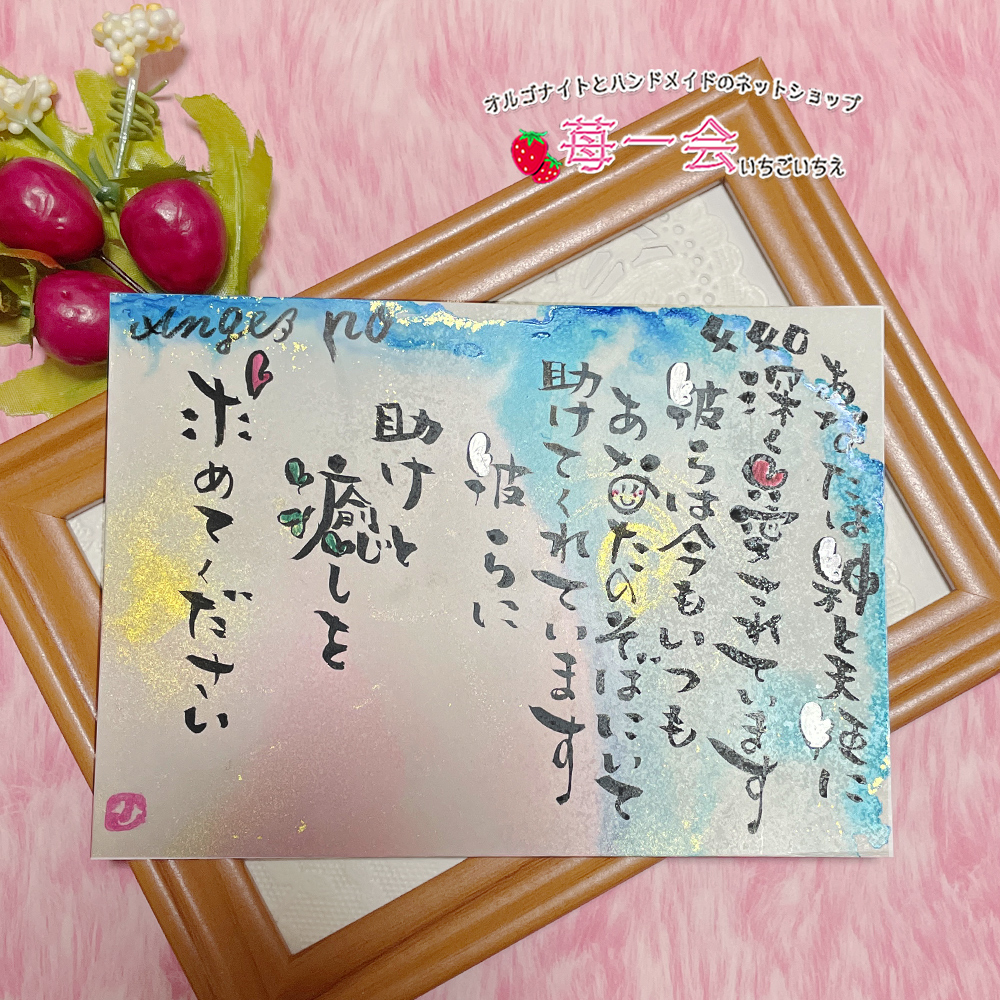 オルゴナイトとハンドメイドのネットショップ
苺一会
いちごいちえ
Anges no
440
あなたは神と天使に
深く愛されています
彼らは今もいつも
あなたのそばにいて
助けてくれています
彼らに
助けと
癒しを
求めてください